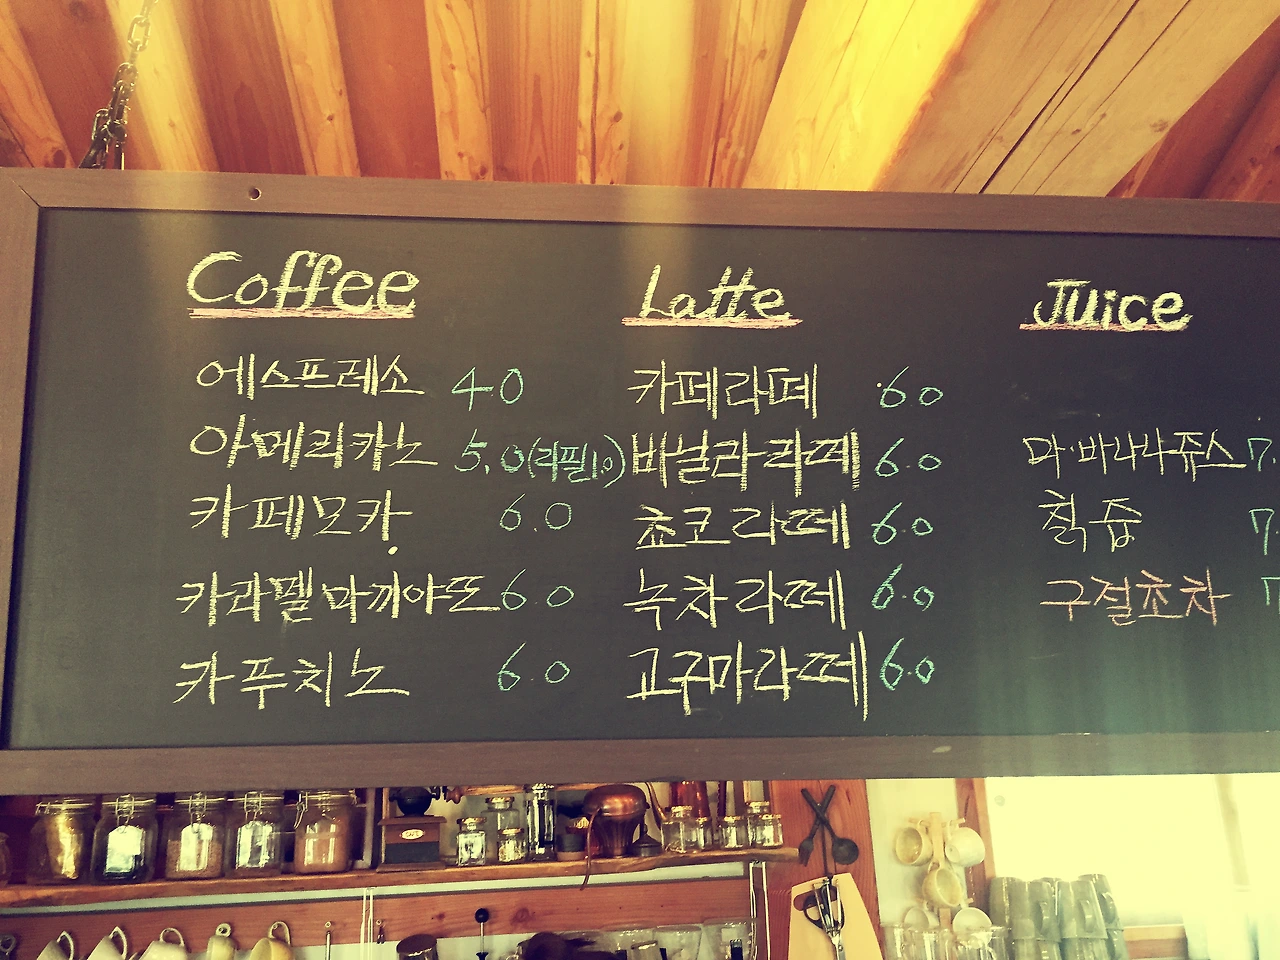 Coffee
에스프레소 4.0
아메리카노 5.0(리필1.0)
카페모카 6.0
카라멜마끼야또 6.0
카푸치노 6.0
Latte
카페라떼 6.0
바닐라라떼 6.0
쵸코라떼 6.0
녹차라떼 6.0
고구마라떼 6.0
Juice
마·바나나쥬스 7.
칡즙 7.
구절초차 7